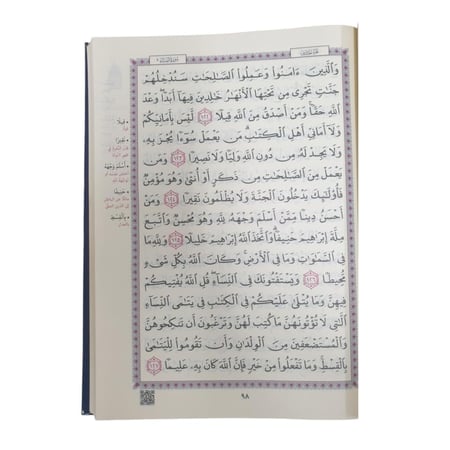 وَالَّذِينَ ءَامَنُوا وَعَمِلُوا الصَّـٰلِحَـٰتِ سَنُدْخِلُهُمْ
جَنَّـٰتٍ تَجْرِى مِن تَحْتِهَا الْأَنْهَـٰرُ خَـٰلِدِينَ فِيهَا أَبَدًا ۖ وَعْدَ
اللَّهِ حَقًّا ۚ وَمَنْ أَصْدَقُ مِنَ اللَّهِ قِيلًا ١٢٢ لَّيْسَ بِأَمَانِيِّكُمْ
وَلَا أَمَانِىِّ أَهْلِ الْكِتَـٰبِ ۗ مَن يَعْمَلْ سُوءًا يُجْزَ بِهِۦ
وَلَا يَجِدْ لَهُۥ مِن دُونِ اللَّهِ وَلِيًّا وَلَا نَصِيرًا ١٢٣ وَمَن
يَعْمَلْ مِنَ الصَّـٰلِحَـٰتِ مِن ذَكَرٍ أَوْ أُنثَىٰ وَهُوَ مُؤْمِنٌ
فَأُولَـٰئِكَ يَدْخُلُونَ الْجَنَّةَ وَلَا يُظْلَمُونَ نَقِيرًا ١٢٤ وَمَنْ
أَحْسَنُ دِينًا مِّمَّنْ أَسْلَمَ وَجْهَهُۥ لِلَّهِ وَهُوَ مُحْسِنٌ وَاتَّبَعَ
مِلَّةَ إِبْرَٰهِيمَ حَنِيفًا ۗ وَاتَّخَذَ اللَّهُ إِبْرَٰهِيمَ خَلِيلًا ١٢٥ وَلِلَّهِ مَا
فِى السَّمَـٰوَٰتِ وَمَا فِى الْأَرْضِ ۚ وَكَانَ اللَّهُ بِكُلِّ شَىْءٍ
مُّحِيطًا ١٢٦ وَيَسْتَفْتُونَكَ فِى النِّسَاءِ ۖ قُلِ اللَّهُ يُفْتِيكُمْ
فِيهِنَّ وَمَا يُتْلَىٰ عَلَيْكُمْ فِى الْكِتَـٰبِ فِى يَتَـٰمَى النِّسَاءِ
الَّـٰتِى لَا تُؤْتُونَهُنَّ مَا كُتِبَ لَهُنَّ وَتَرْغَبُونَ أَن تَنكِحُوهُنَّ
وَالْمُسْتَضْعَفِينَ مِنَ الْوِلْدَٰنِ وَأَن تَقُومُوا لِلْيَتَـٰمَىٰ
بِالْقِسْطِ ۚ وَمَا تَفْعَلُوا مِنْ خَيْرٍ فَإِنَّ اللَّهَ كَانَ بِهِۦ عَلِيمًا ١٢٧
٩٨
• قِيلًا
• نَقِيرًا
• أَسْلَمَ وَجْهَهُ
• حَنِيفًا
• بِالْقِسْطِ